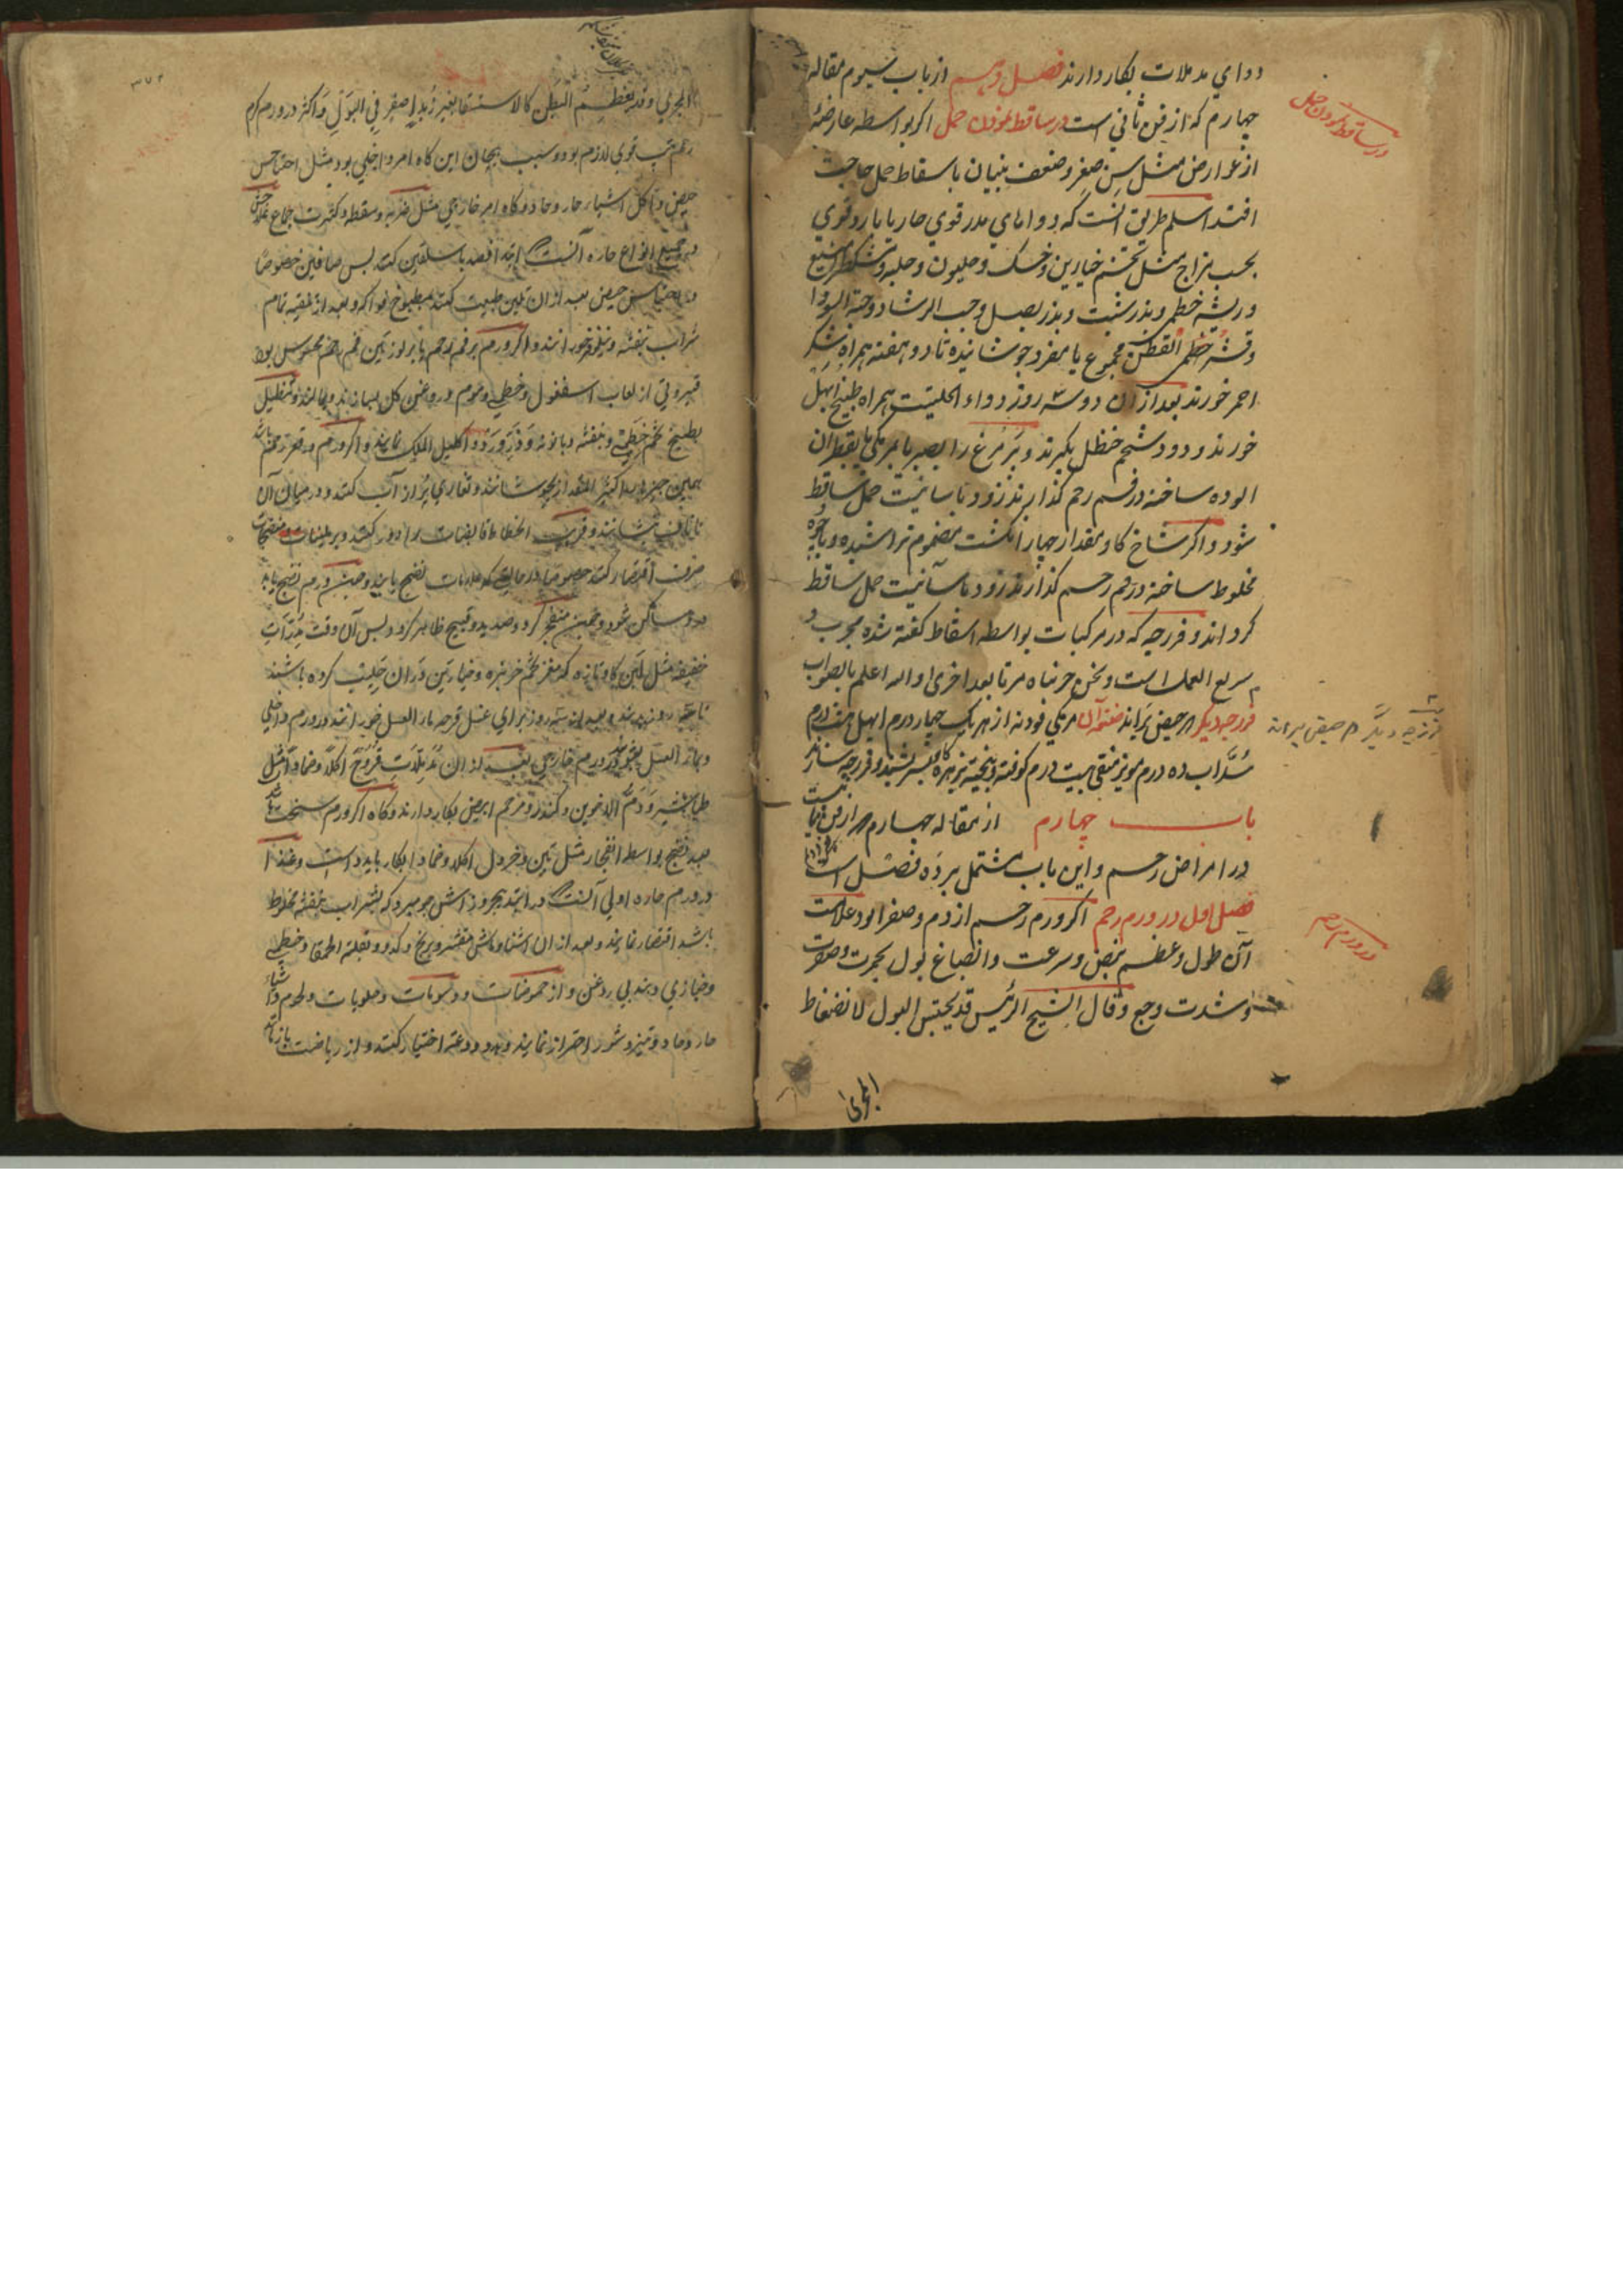 دوای مدملات بکار دارند فصل دهم از باب سیوم مقاله
چهارم که از فن ثانی است در ساقط نمودن حمل اکر بواسطه عارضهٔ
در ساقط نمودن حمل
از عوارض مثل سن صغر و ضعف بنیان باسقاط حمل حاجت
افتد اسلم طریق آنست که دواهای مدر قوی حار یا بارد قوی
بحسب مزاج مثل تخم خیارین و خسک و هلیون و حلبه و
و ریشه خطمی و بذر شبت و بذر بصل و حب الرشاد و حبة السودا
و قشر القطن مجموع یا مفرد جوشانیده تا دو هفته همراه شکر
احمر خورند بعد از آن دو سه روز دواء الحلتیت همراه طبیخ ابهل
خورند و دود شحم حنظل بکیرند و پر مرغ را بصبر یا مرمکی یا بقطران
الوده ساخته در فم رحم کذارند زود باسانیت حمل ساقط
شود و اکر شاخ کاو بمقدار چهار انکشت مضموم تراشیده و
مخلوط ساخته در فم رحم کذارند زود باسانیت حمل ساقط
کرداند و فرزجه که در مرکبات بواسطه اسقاط کفته شده مجرب و
سریع العمل است و نحن جربناه مرتا بعد اخری و الله اعلم بالصواب
فرزجه دیکر که حیض براند صفته آن مرمکی فودنه از هر یک چهار درم ابهل هشت درم
فرزجه دیکر که حیض براند
سداب ده درم مویز منقی بیست درم کوفته و بیخته بزهره کاو بسرشند و فرزجه سازند
باب چهارم از مقاله چهارم از فن ثانی
در امراض رحم و این باب مشتمل بر ده فصل است
فصل اول در ورم رحم اکر ورم رحم از دم و صفرا بود علامت
در ورم رحم
آن طول و عظم نبض و سرعت و انصباغ بول بحمرت و صفرت
و شدت وجع و قال الشیخ الرئیس قد یحتبس البول لانضغاط
المجری
المجری و قد یعظم البطن کالاستسقا بغیر فی البول و اکثر در ورم کرم
رحم تب قوی لازم بود و سبب هیجان این کاه امر داخلی بود مثل احتباس
حیض و اکل اشیاء حار و حاد و کاه امر خارجی مثل ضربه و سقطه و کثرت جماع علاج
جمیع انواع حاره آنست که ابتدا فصد باسلیقین کنند پس صافین خصوصا
در احتباس حیض بعد از آن تلیین طبیعت کنند بمطبوخ فواکه و بعد از تنقیه تمام
شراب بنفشه و نیلوفر خورانند و اکر ورم بر فم رحم یا نزدیک باین فم رحم محسوس بود
قیروطی از لعاب اسفغول و خطمی و موم و روغن کل بسازند و بمالند و تنطیل
بطبیخ تخم خطمی و بنفشه و بابونه و زر ورد و اکلیل الملک نمایند و اکر ورم در قعر رحم باشد
همین چیزها را کثیر المقدار بجوشانند و تغاری پر از آب کنند و در میان آن
تا ناف بنشانند و قریب انحطاط قابضات را دور کنند و بر ملینات و منضجات
صرف اقتصار کنند خصوصا در حالتی که علامات نضج یابند و چون ورم نضج یابد
درد ساکن شود و چون منفجر کردد و صدید و قیح ظاهر کردد پس آن وقت مدرات
خفیفه مثل لبن کاو تازه که مغز تخم خربزه و خیارین در آن حلیب کرده باشند
تا سه روز بدهند و بعد از سه روز برای غسل قرحه ماء العسل خورانند در ورم داخلی
و بماء العسل بشویند در ورم خارجی بعد از آن مدملات قروح اکلا و ضمادا مثل
طباشیر و دم الاخوین و کندر و مرهم ابیض بکار دارند و کاه اکر ورم سخت باشد
بعد نضج بواسطه انفجار مثل تین و خردل اکلا و ضمادا بکار باید داشت و غذا
در ورم حاره اولی آنست که در ابتدا بجز از اش جو میده که بشراب بنفشه مخلوط
باشد اقتصار نمایند و بعد از آن اشنا و ماش مقشر و برنج و کدو و بقلة الحمقا و خطمی
و خبازی دهند بی روغن و از حموضات و دسومات و حلویات و لحوم و اشیاء
حار و حاد و تیز و شور احتراز نمایند و هدو و دعت اختیار کنند و از ریاضت باز مانند